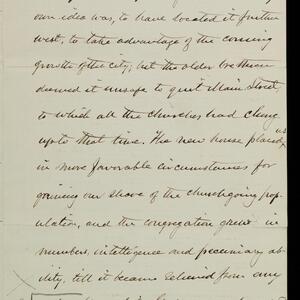 own idea was, to have located it further
west, to take advantage of the coming
growth of the city; but the older brethren
deemed it unsafe to quit Main Street,
to which all the churches had clung
up to that time. The new house placed us
in more favorable circumstances for
gaining our share of the churchgoing pop-
ulation, and the congregation grew in
numbers, intelligence and pecuniary ab-
ility, till it became behind from any